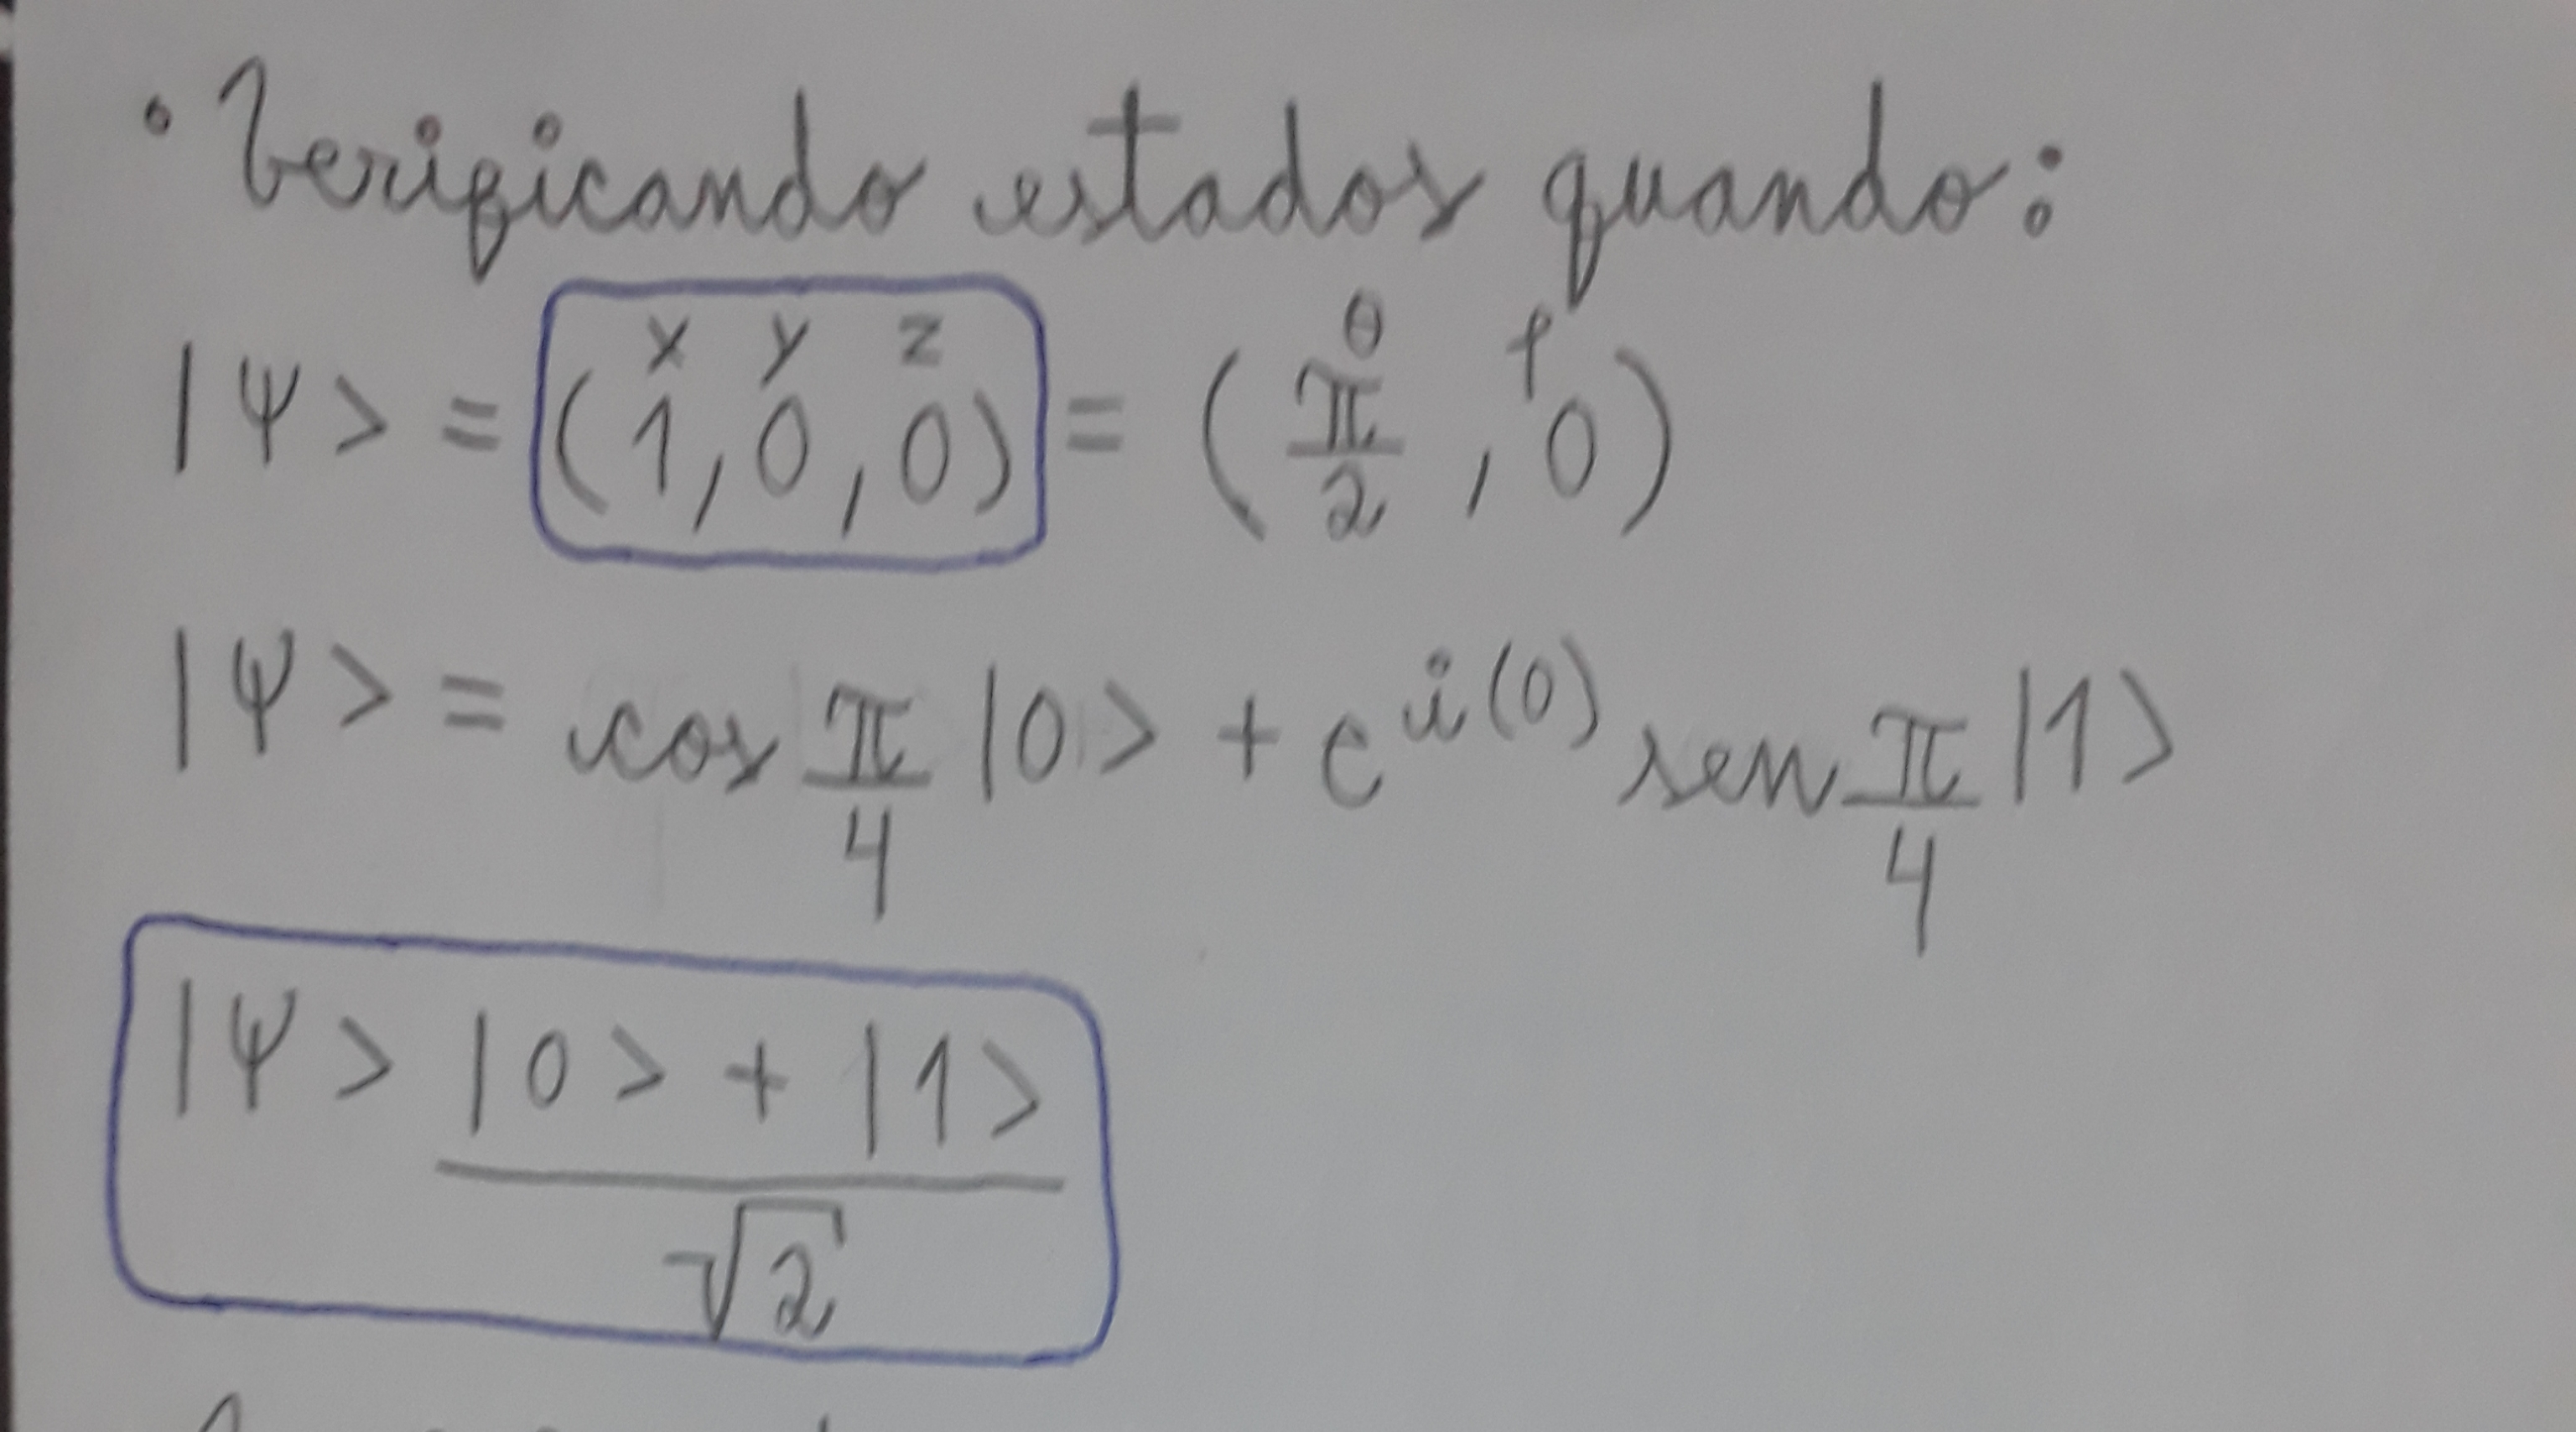 • Verificando estados quando:
x y z θ φ
|Ψ> = (1, 0, 0) = (π/2, 0)
|Ψ> = cos π/4 |0> + e^i(0) sen π/4 |1>
|Ψ> |0> + |1>
√2